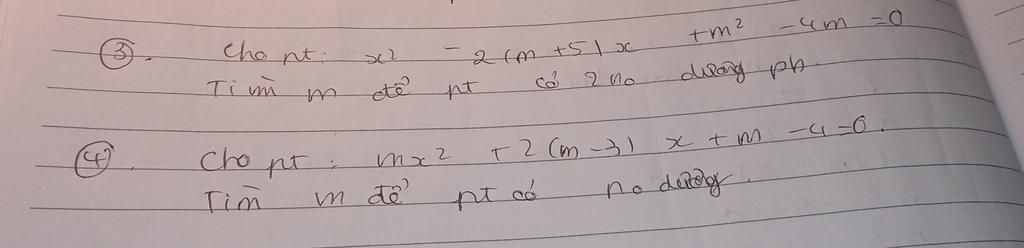 ③. Cho pt: x² - 2(m+5)x + m² - 4m = 0
Tìm m để pt có 2 no dương pb.
④. Cho pt: mx² + 2(m-3)x + m - 4 = 0.
Tìm m để pt có no dương.